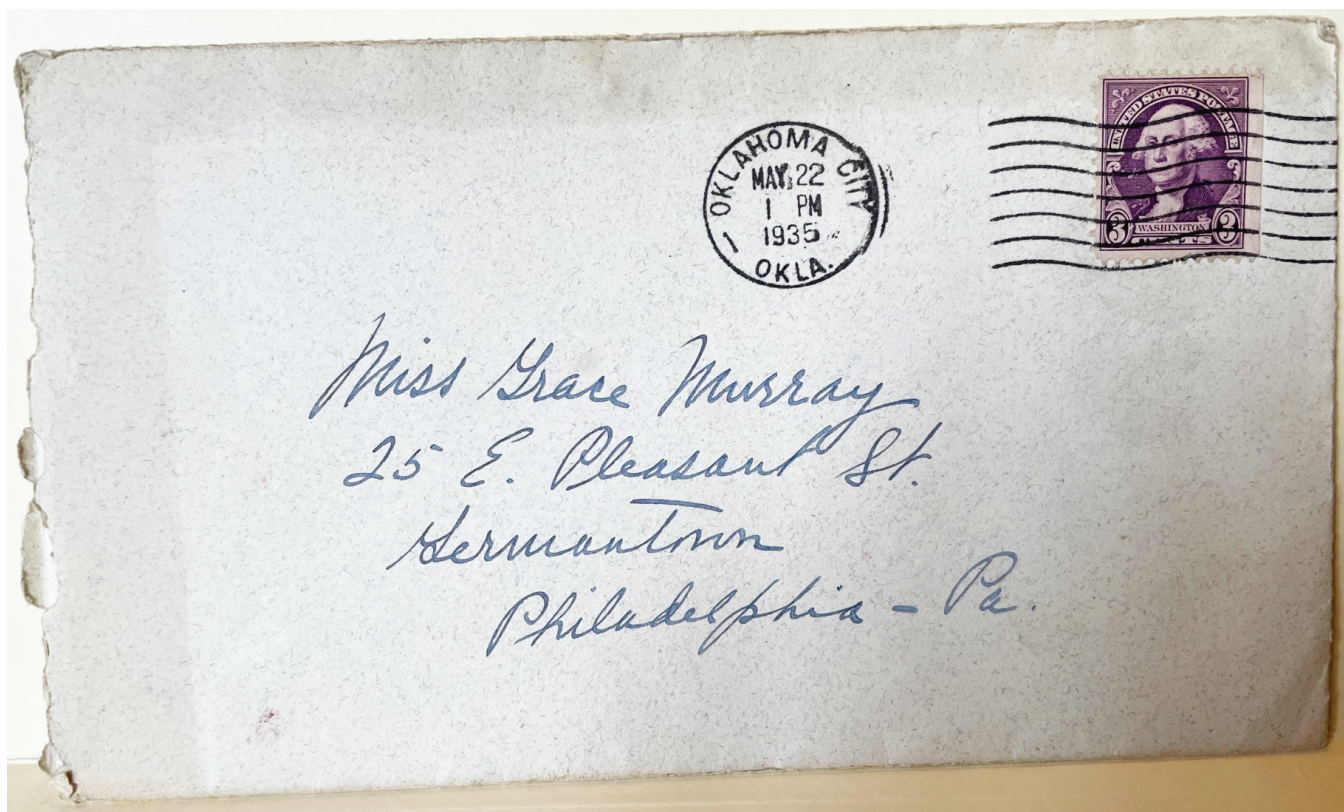 OKLAHOMA CITY
MAY 22
1 PM
1935
OKLA.
UNITED STATES POSTAGE
3 WASHINGTON 3
Miss Grace Murray
25 E. Pleasant St.
Germantown
Philadelphia - Pa.